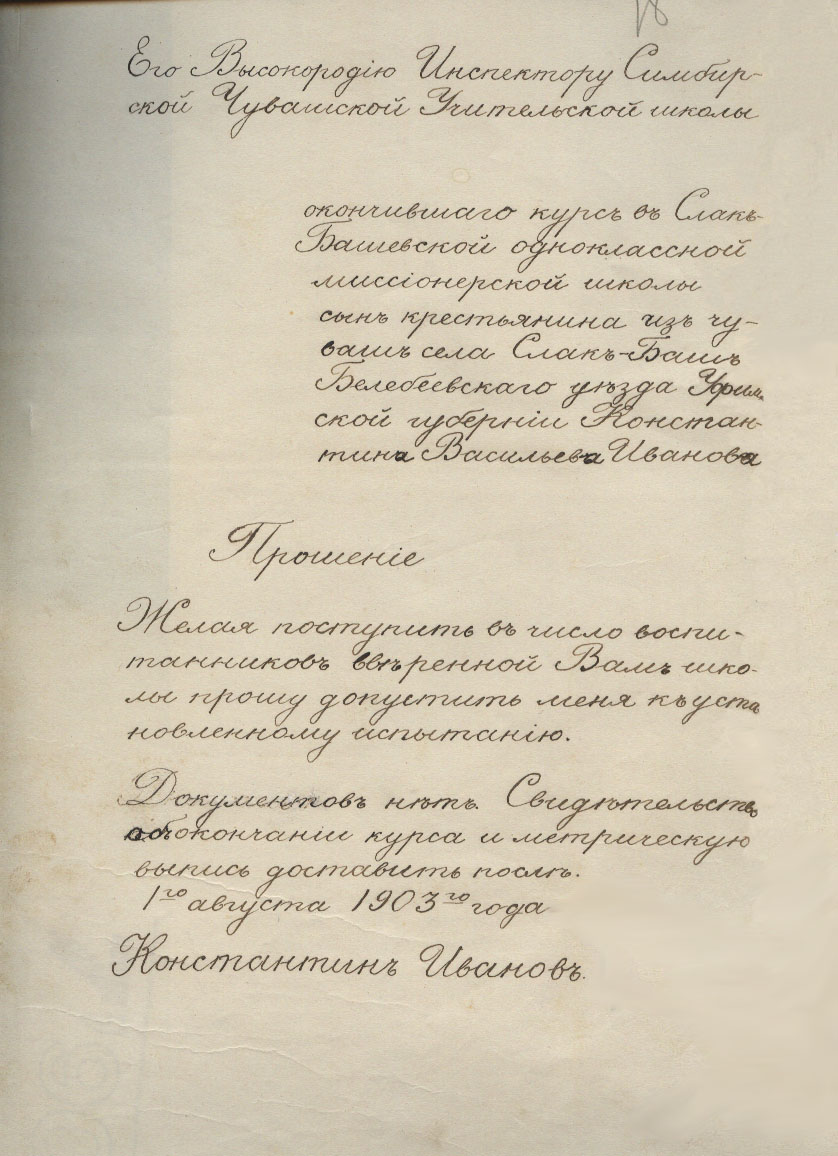 18
Его Высокородію Инспектору Симбир-
ской Чувашской Учительской школы
окончившаго курсъ въ Слакъ-
Башевской одноклассной
миссіонерской школы
сынъ крестьянина изъ чу-
вашъ села Слакъ-Башъ
Белебеевскаго уѣзда Уфим-
ской губерніи Констан-
тина Васильева Иванова
Прошеніе
Желая поступить въ число воспи-
танниковъ ввѣренной Вамъ шко-
лы прошу допустить меня къ уста
новленному испытанію.
Документовъ нѣтъ. Свидѣтельство
объ окончаніи курса и метрическую
выпись доставить послѣ.
1го августа 1903го года
Константинъ Ивановъ.